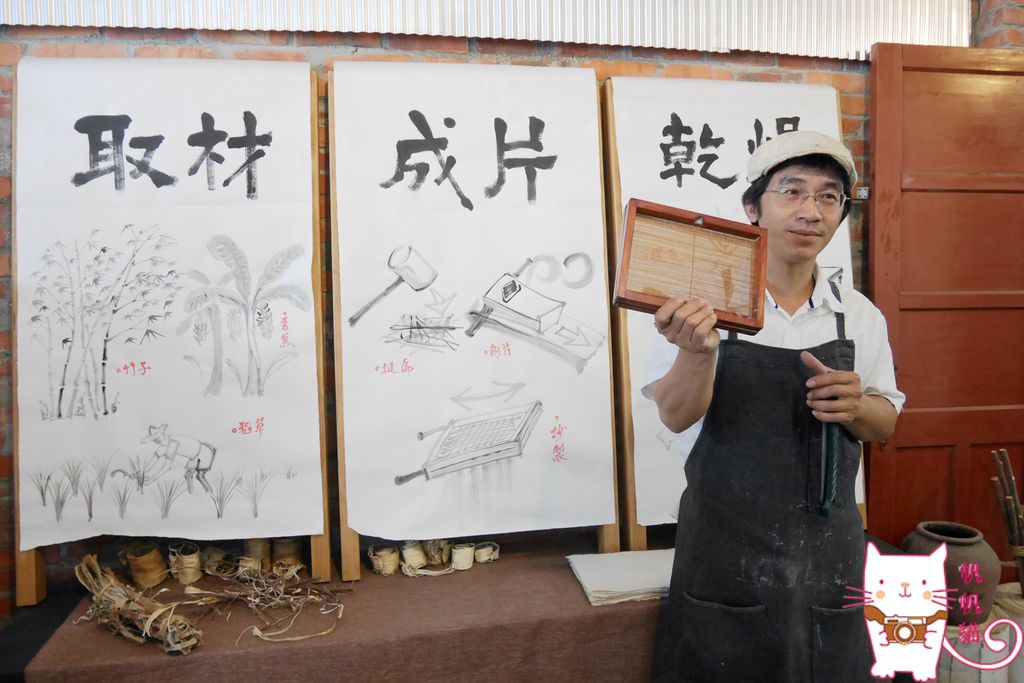 取材
竹子
香蕉
稻草
成片
搥扁
刨片
抄製
乾燥
帆帆貓